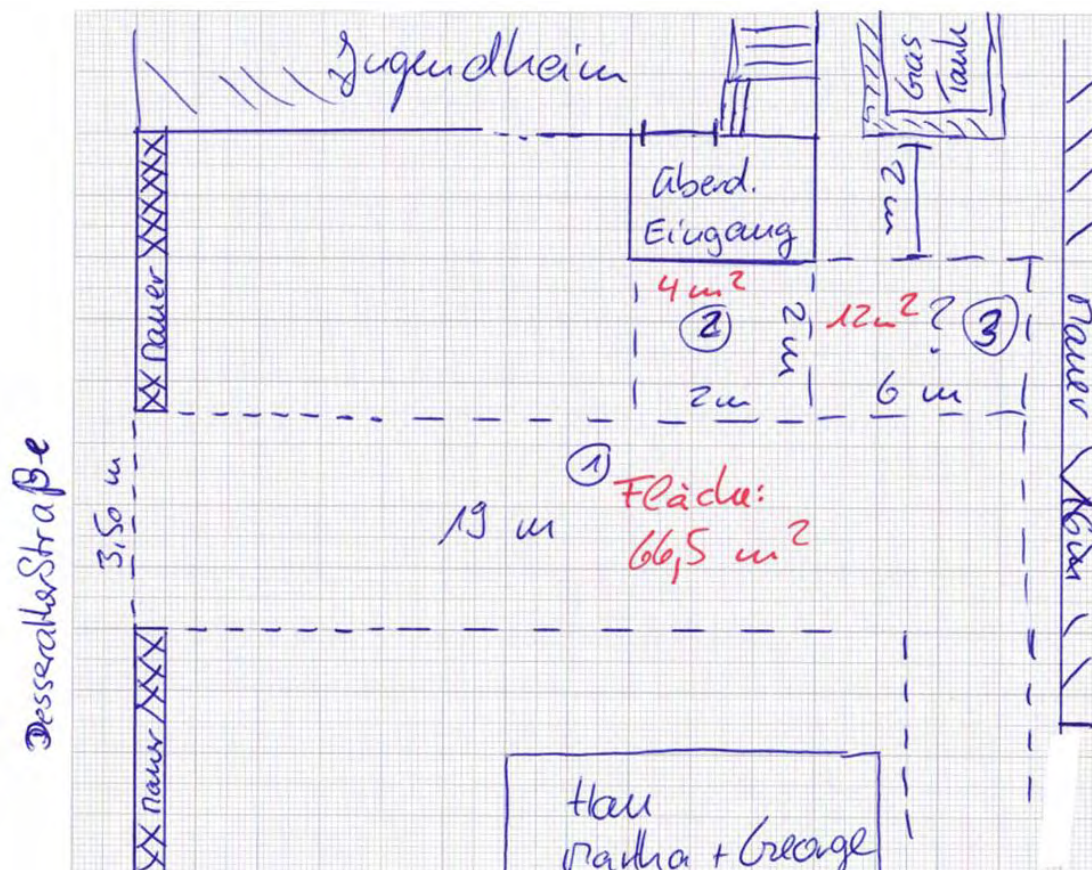 Jugendheim
Gas
Tank
Überd.
Eingang
2 m
4 m²
②
2 m
2 m
12 m² ?
③
6 m
Mauer
16 m
Mauer
3,50 m
①
Fläche:
66,5 m²
19 m
Mauer
Haus
Martha + George